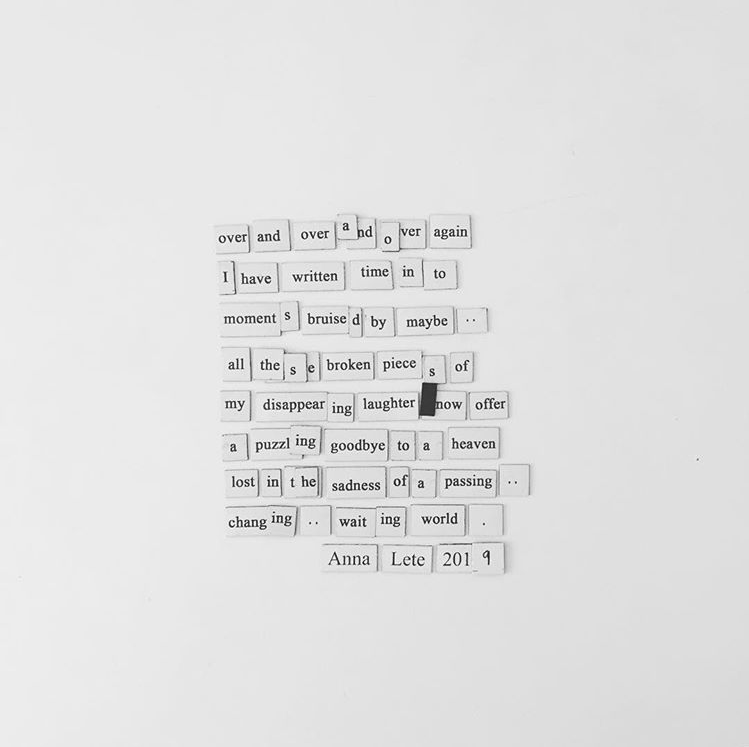 over and over and over again
I have written time in to
moments bruised by maybe ..
all these broken pieces of
my disappearing laughter now offer
a puzzling goodbye to a heaven
lost in the sadness of a passing ..
changing .. waiting world .
Anna Lete 2019